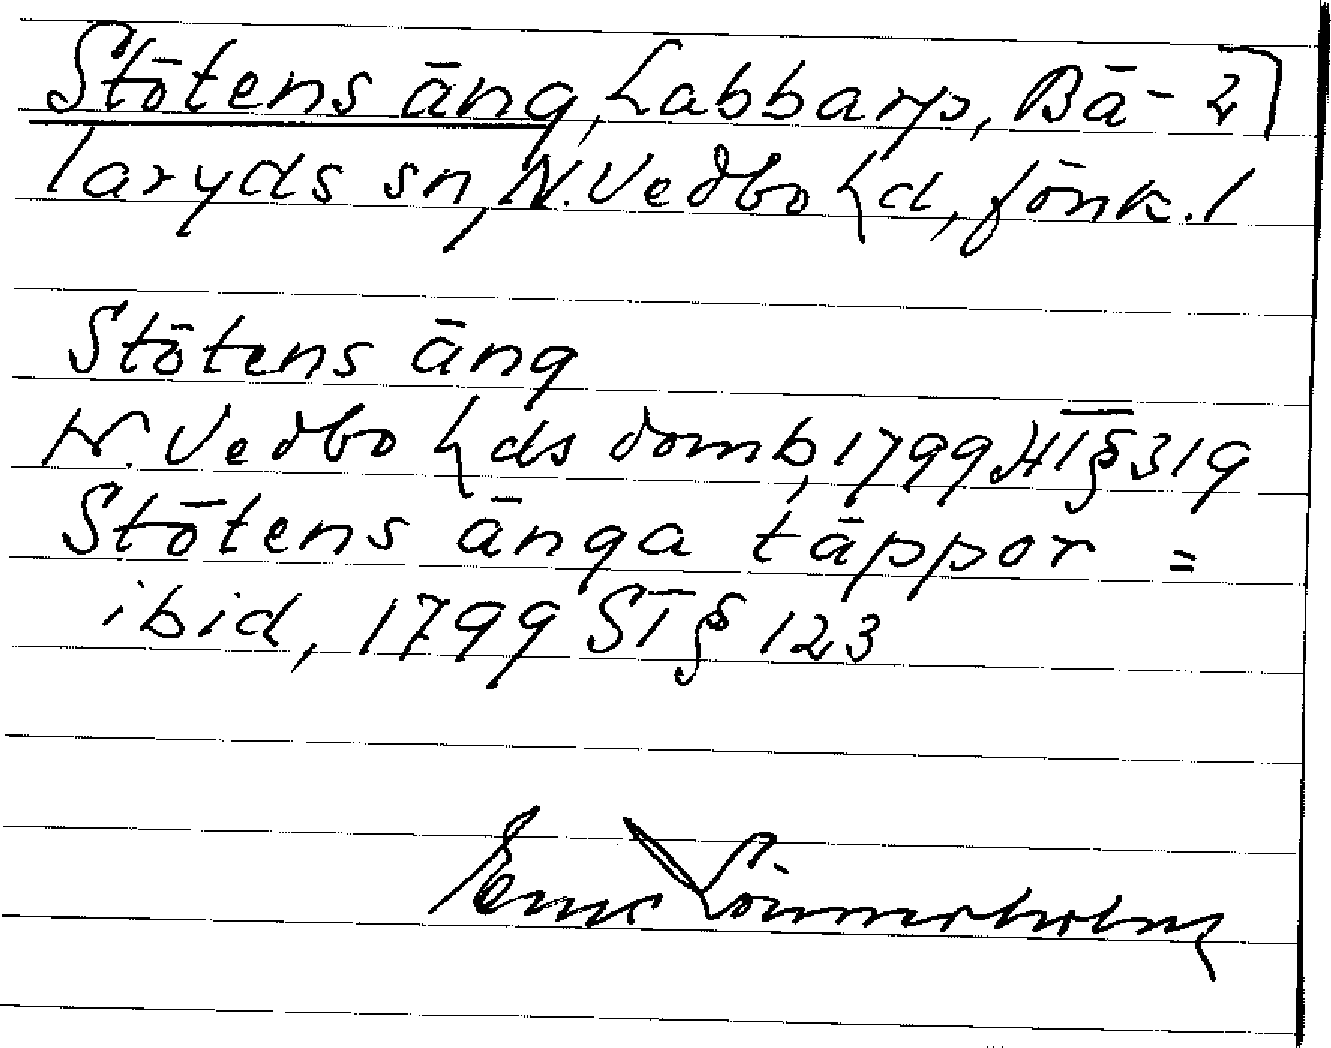 Stötens äng, Labbarp, Bä- 2
laryds sn, N. Vedbo hd, Jönk. l
Stötens äng
N. Vedbo hds domb, 1799 HT § 319
Stötens änga täppor =
ibid, 1799 ST § 123